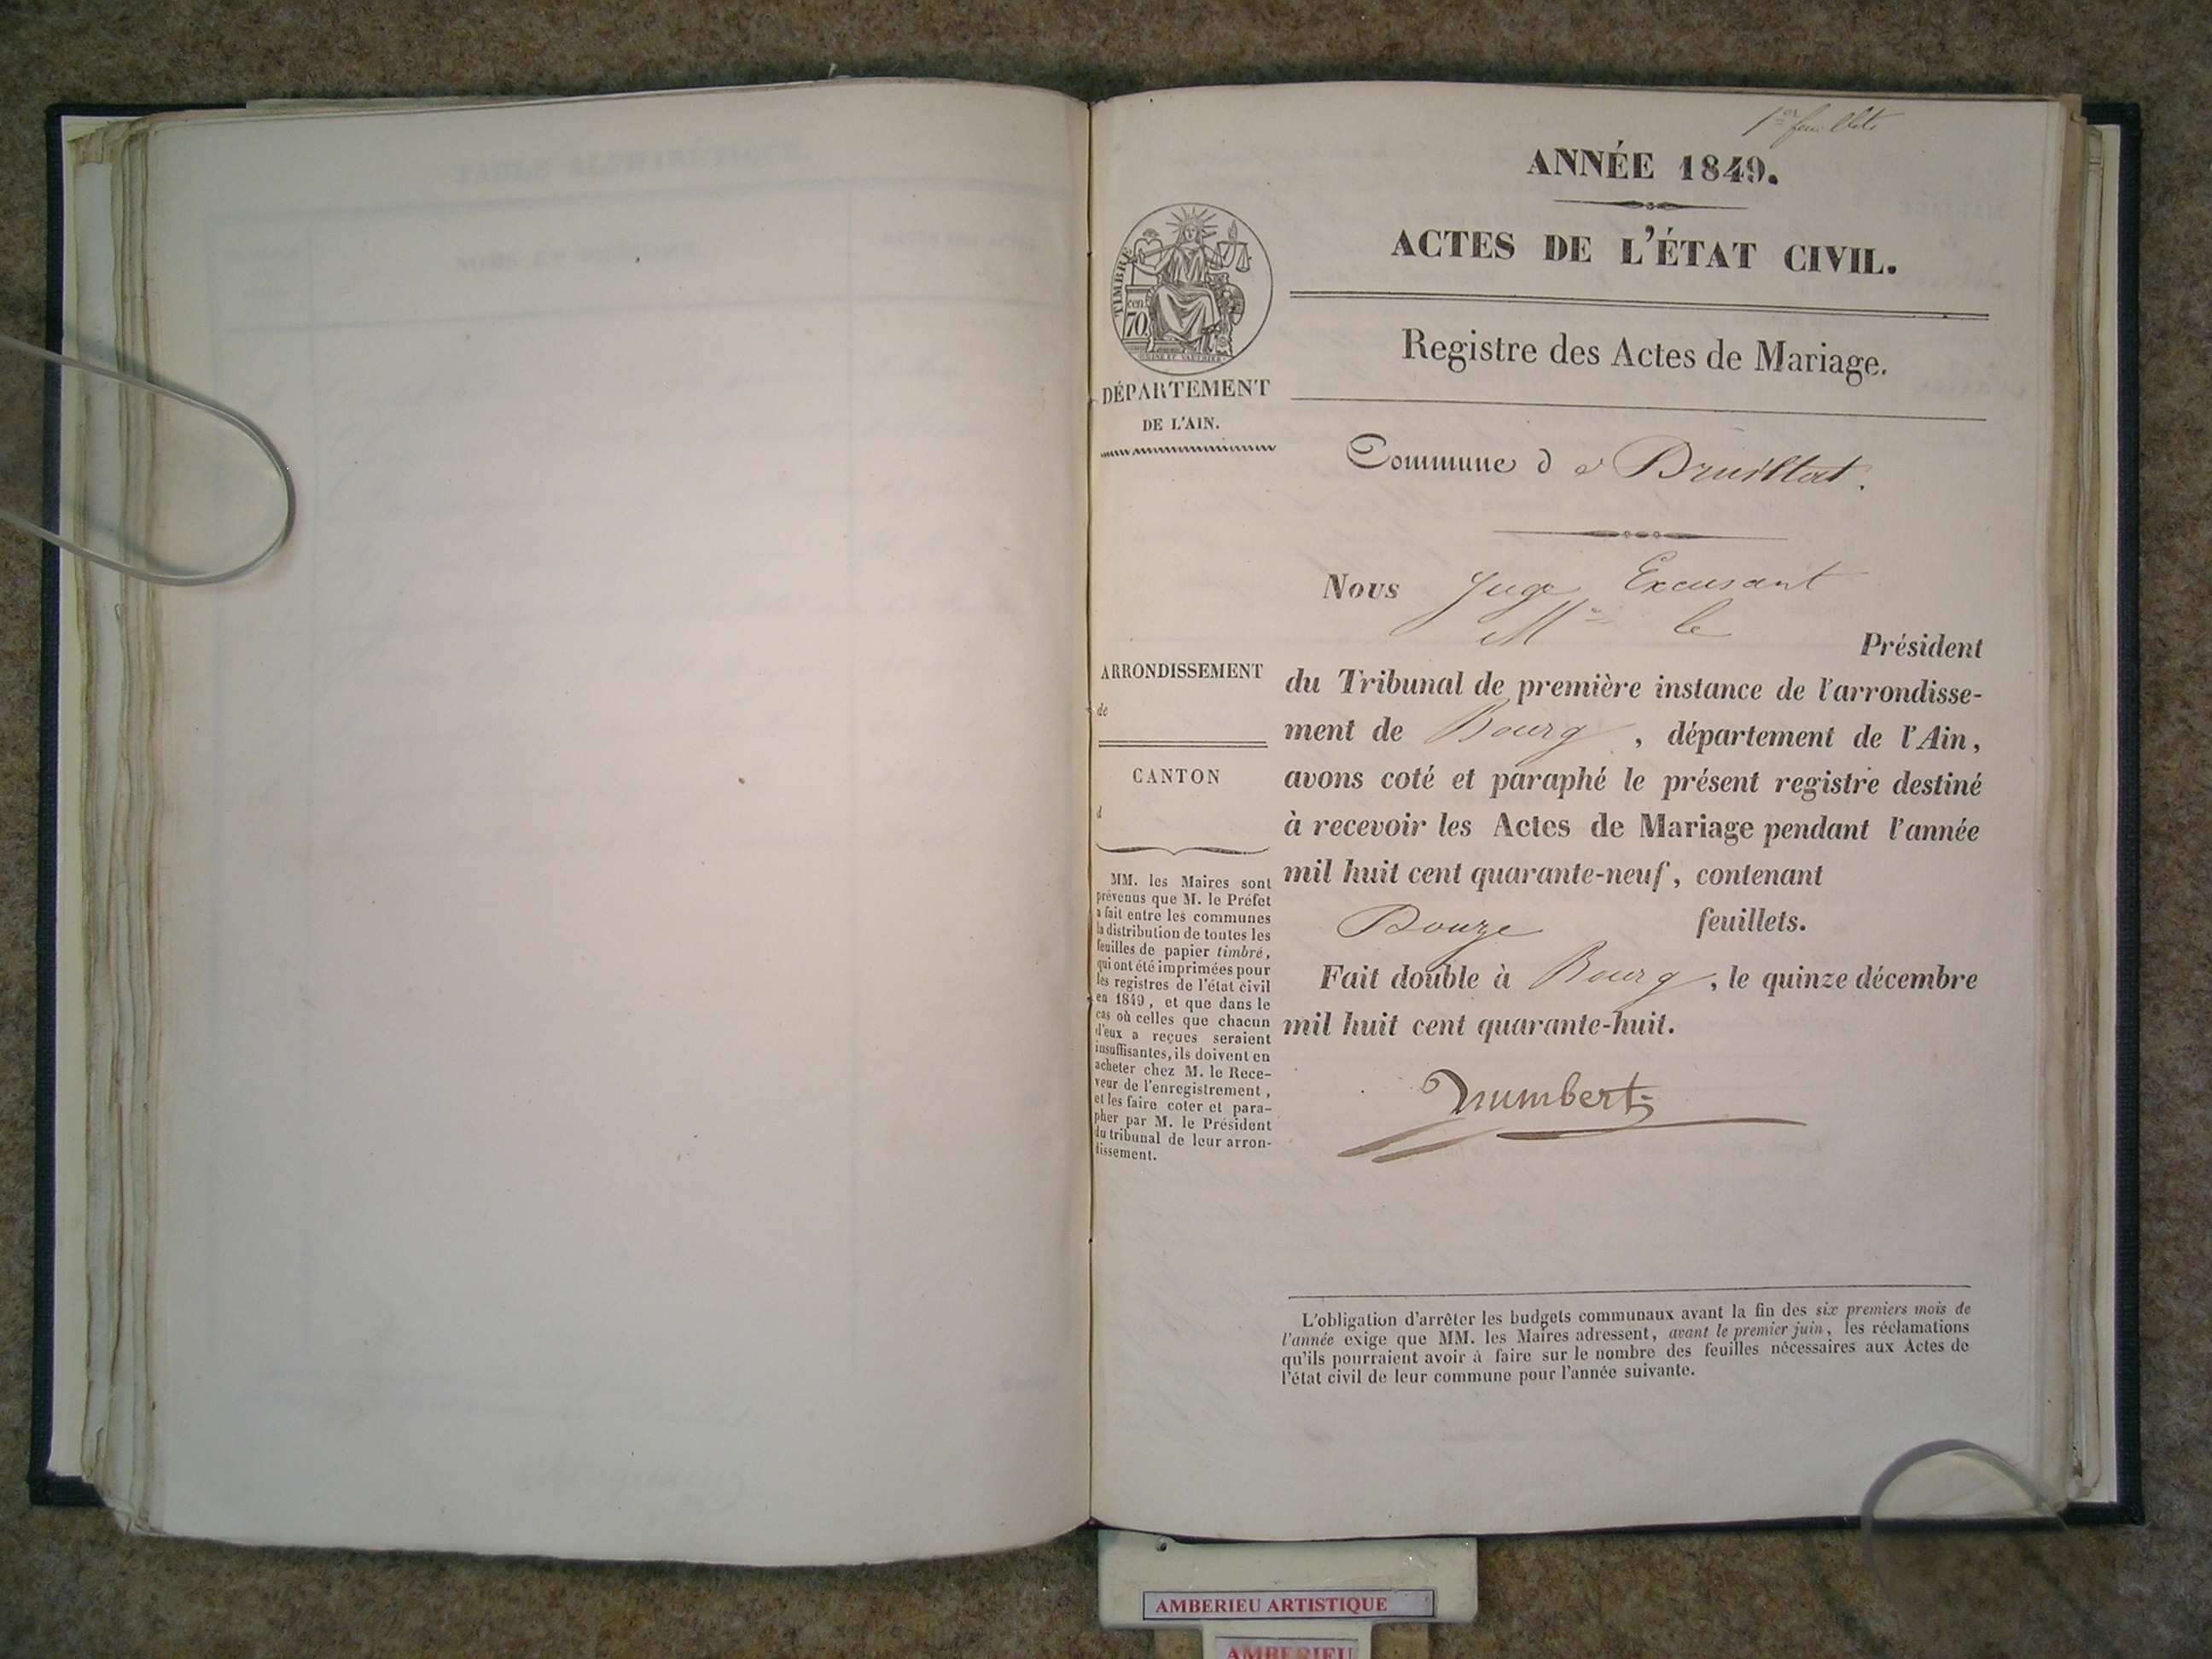 1er feuillet
ANNÉE 1849.
ACTES DE L'ÉTAT CIVIL.
TIMBRE
cen.
70
DÉPARTEMENT
DE L'AIN.
Registre des Actes de Mariage.
Commune de Druillat.
Nous Juge Excusant
Mr le
Président
du Tribunal de première instance de l'arrondisse-
ment de Bourg, département de l'Ain,
avons coté et paraphé le présent registre destiné
à recevoir les Actes de Mariage pendant l'année
mil huit cent quarante-neuf, contenant
Douze feuillets.
Fait double à Bourg, le quinze décembre
mil huit cent quarante-huit.
humbert
ARRONDISSEMENT
de
CANTON
d
MM. les Maires sont
prévenus que M. le Préfet
a fait entre les communes
la distribution de toutes les
feuilles de papier timbré,
qui ont été imprimées pour
les registres de l'état civil
en 1849, et que dans le
cas où celles que chacun
d'eux a reçues seraient
insuffisantes, ils doivent en
acheter chez M. le Rece-
veur de l'enregistrement,
et les faire coter et para-
pher par M. le Président
du tribunal de leur arron-
dissement.
L'obligation d'arrêter les budgets communaux avant la fin des six premiers mois de
l'année exige que MM. les Maires adressent, avant le premier juin, les réclamations
qu'ils pourraient avoir à faire sur le nombre des feuilles nécessaires aux Actes de
l'état civil de leur commune pour l'année suivante.
AMBERIEU ARTISTIQUE
AMBERIEU